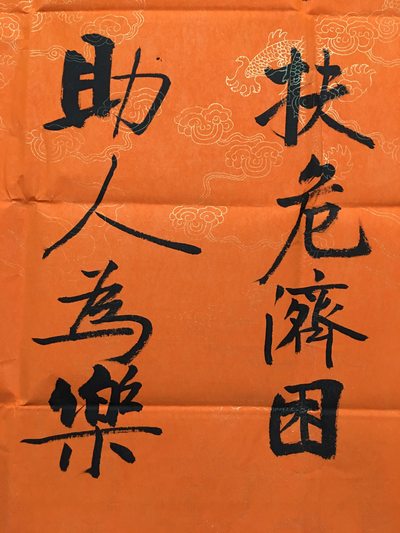 扶危濟困
助人為樂